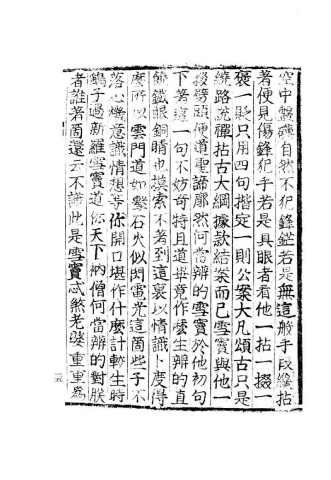 空中盤礴自然不犯鋒鋩若是無這般手段纔拈
著便見傷鋒犯手若是具眼者看他一拈一掇一
褒一貶只用四句揩定一則公案大凡頌古只是
繞路說禪拈古大綱據款結案而已雪竇與他一
拶劈頭便道聖諦廓然何當辨的雪竇於他初句
下著這一句不妨奇特且道畢竟作麼生辨的直
饒鐵眼銅睛也摸索不著到這裏以情識卜度得
麼所以雲門道如擊石火似閃電光這箇些子不
落心機意識情想等你開口堪作什麼計較生時
鷂子過新羅雪竇道你天下衲僧何當辨的對朕
者誰著箇還云不識此是雪竇忒煞老婆重重為